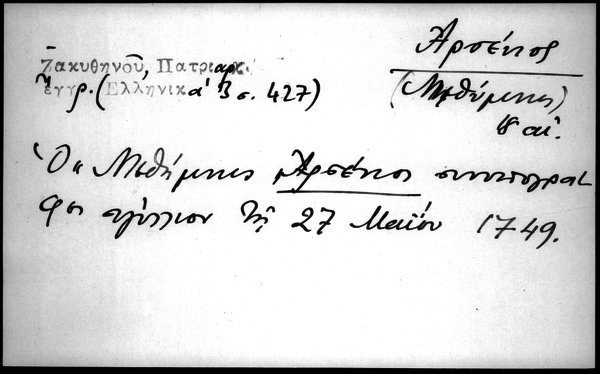 Ζακυθηνοῦ, Πατριαρχ.
ἔγγρ. (Ἑλληνικά 3 σ. 427)
Ἀρσένιος
(Μηθύμνης)
18 αἰ.
Ὁ Μηθύμνης Ἀρσένιος συνυπογρά-
φει σιγίλλιον τῇ 27 Μαΐου 1749.